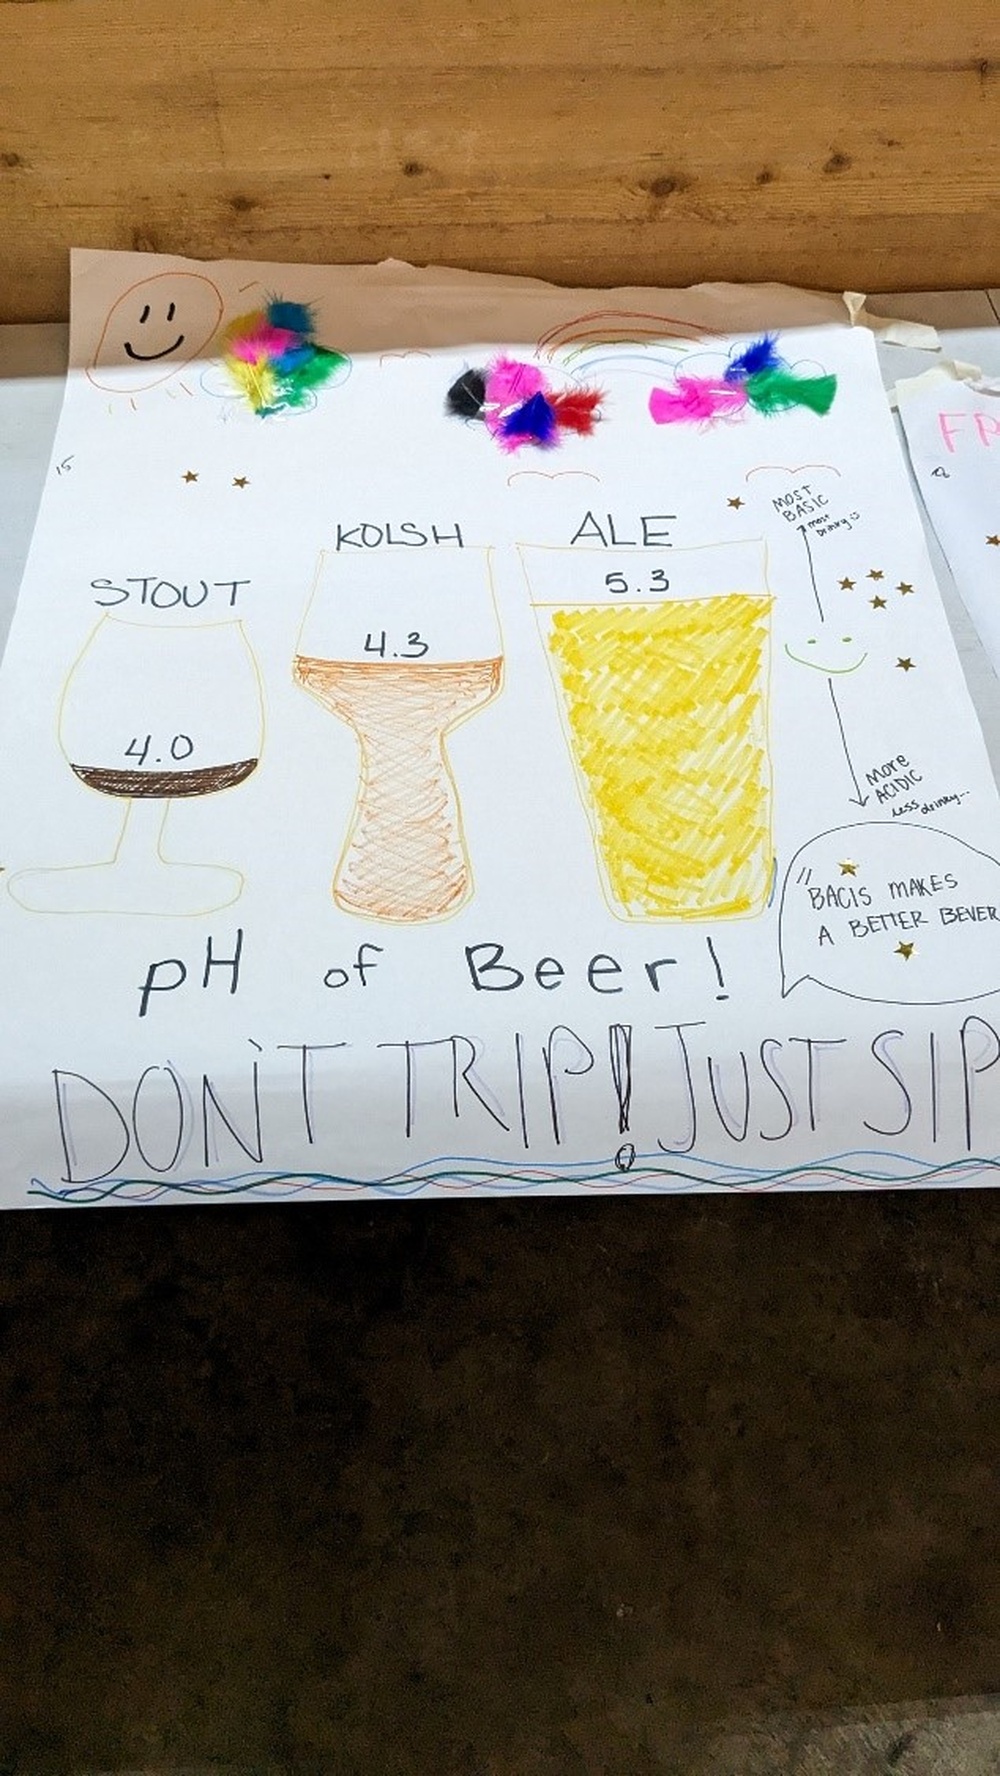 15
FR
STOUT
KOLSH
ALE
4.0
4.3
5.3
MOST
BASIC
most
drinky :)
MORE
ACIDIC
less drinky...
"BACIS MAKES
A BETTER BEVER
pH of Beer!
DON'T TRIP! JUST SIP